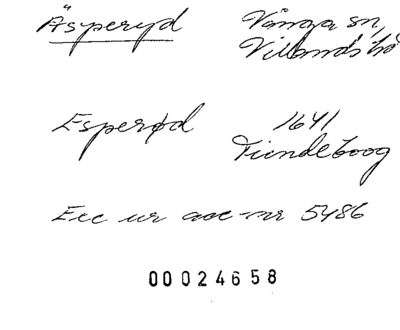 Äsperyd Vånga sn,
Villands hd
Esperød 1641
Tiendeboog
Exc ur acc-nr 5486
00024658